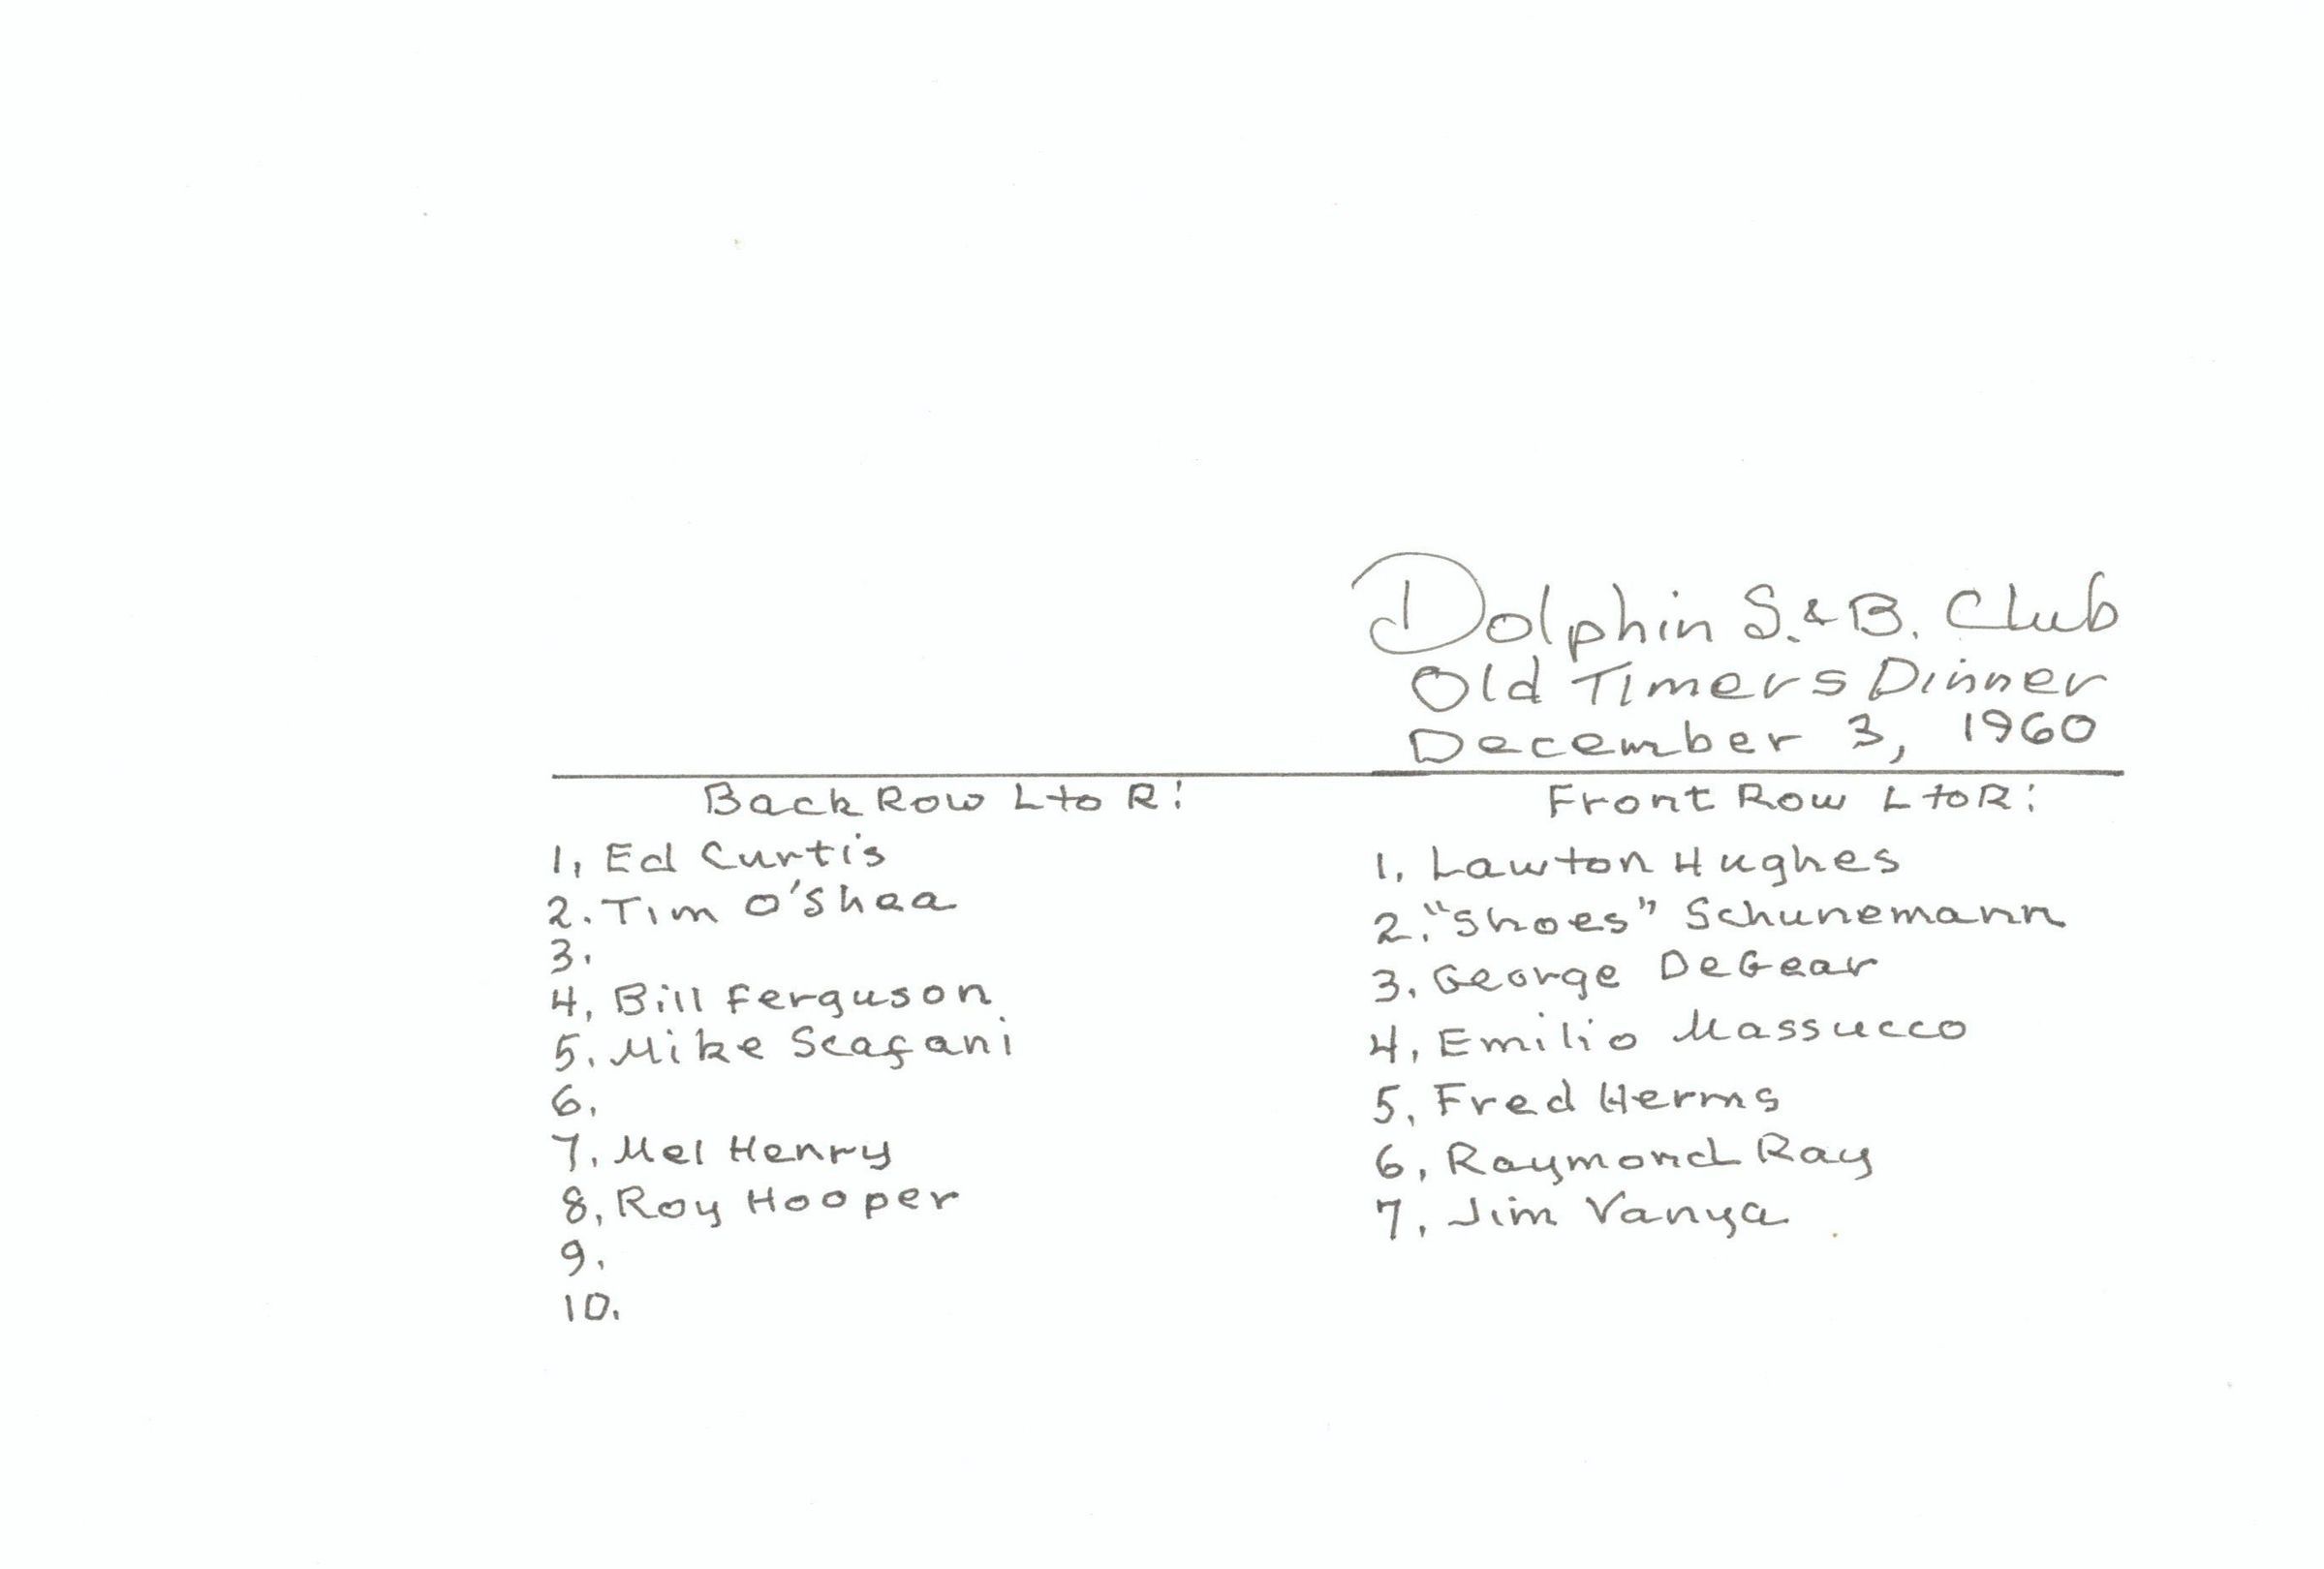 Dolphin S.&B. Club
Old Timers Dinner
December 3, 1960
Back Row L to R:
1, Ed Curtis
2. Tim O'Shea
3.
4, Bill Ferguson
5. Mike Scafani
6.
7. Mel Henry
8, Roy Hooper
9.
10.
Front Row L to R:
1. Lawton Hughes
2. "Shoes" Schunemann
3. George DeGear
4, Emilio Massucco
5, Fred Herms
6, Raymond Ray
7, Jim Vanya